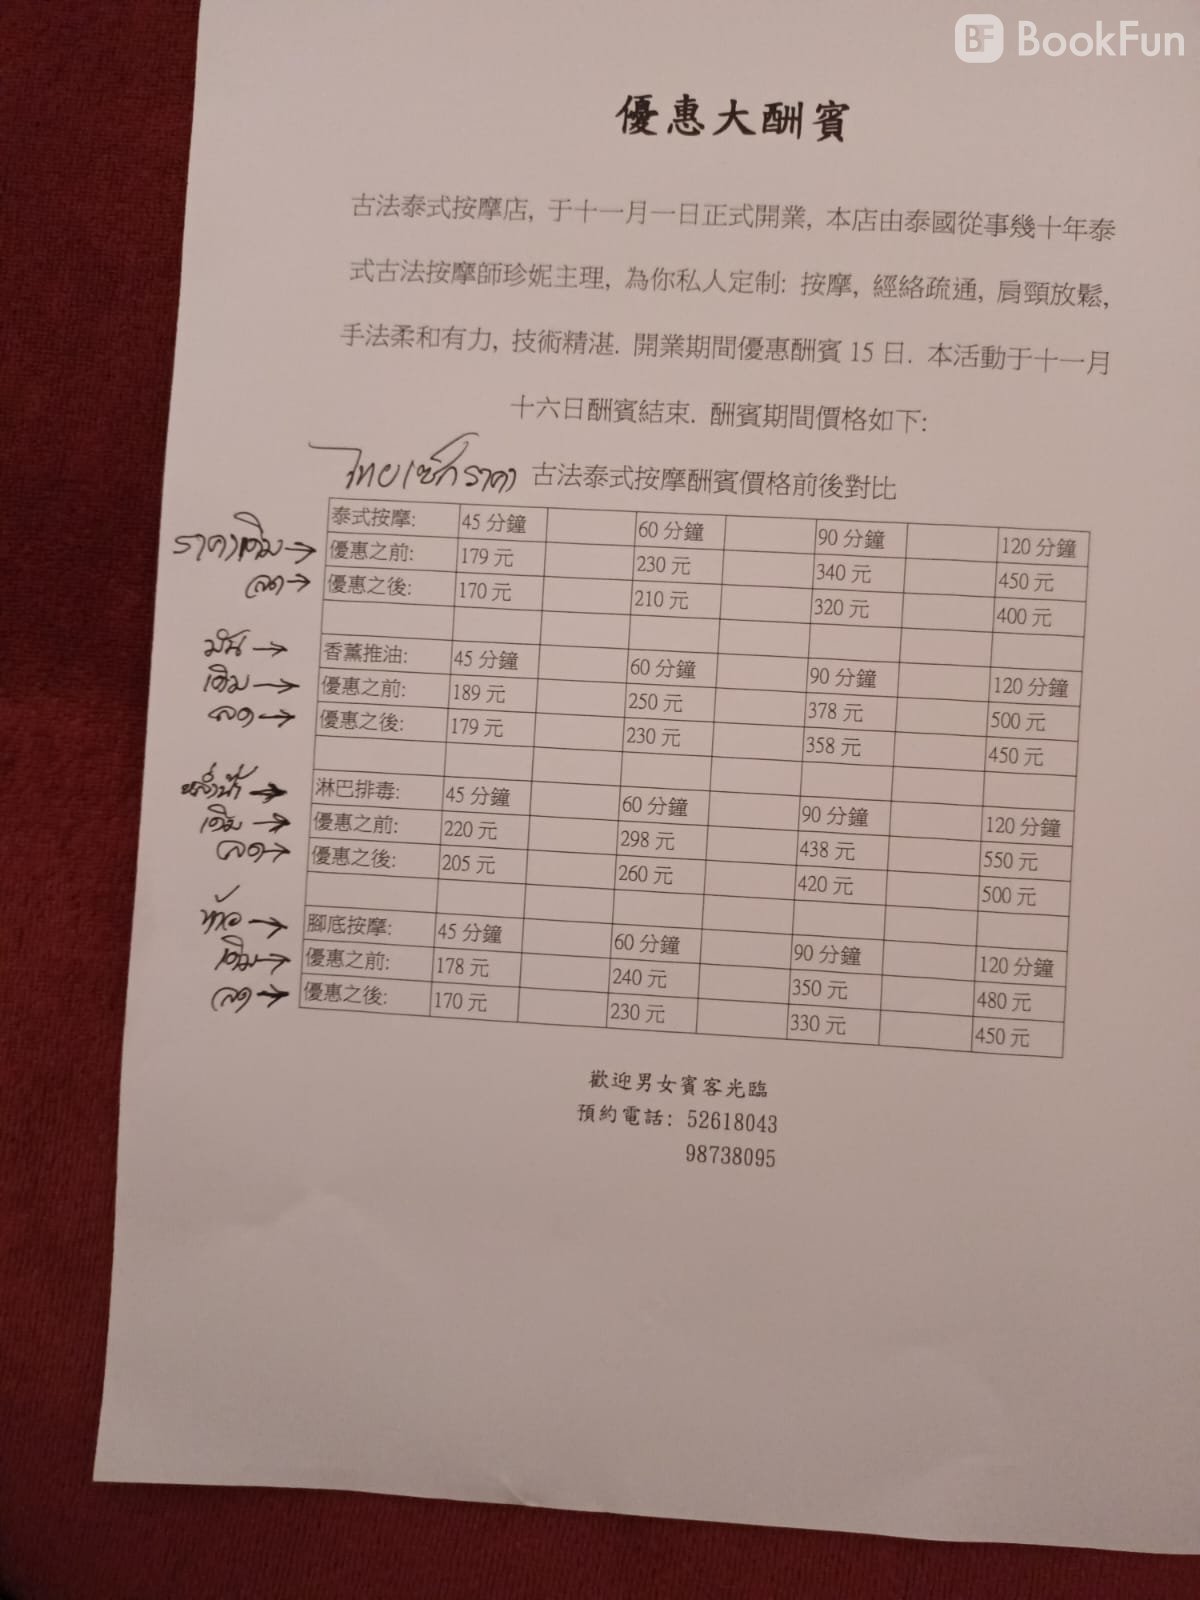 BF BookFun
優惠大酬賓
古法泰式按摩店, 于十一月一日正式開業, 本店由泰國從事幾十年泰
式古法按摩師珍妮主理, 為你私人定制: 按摩, 經絡疏通, 肩頸放鬆,
手法柔和有力, 技術精湛. 開業期間優惠酬賓 15 日. 本活動于十一月
十六日酬賓結束. 酬賓期間價格如下:
古法泰式按摩酬賓價格前後對比
泰式按摩: 45 分鐘 60 分鐘 90 分鐘 120 分鐘
ราคาเดิม → 優惠之前: 179 元 230 元 340 元 450 元
ลด → 優惠之後: 170 元 210 元 320 元 400 元
香薰推油: 45 分鐘 60 分鐘 90 分鐘 120 分鐘
เดิม → 優惠之前: 189 元 250 元 378 元 500 元
ลด → 優惠之後: 179 元 230 元 358 元 450 元
淋巴排毒: 45 分鐘 60 分鐘 90 分鐘 120 分鐘
เดิม → 優惠之前: 220 元 298 元 438 元 550 元
ลด → 優惠之後: 205 元 260 元 420 元 500 元
腳底按摩: 45 分鐘 60 分鐘 90 分鐘 120 分鐘
เดิม → 優惠之前: 178 元 240 元 350 元 480 元
ลด → 優惠之後: 170 元 230 元 330 元 450 元
歡迎男女賓客光臨
預約電話: 52618043
98738095